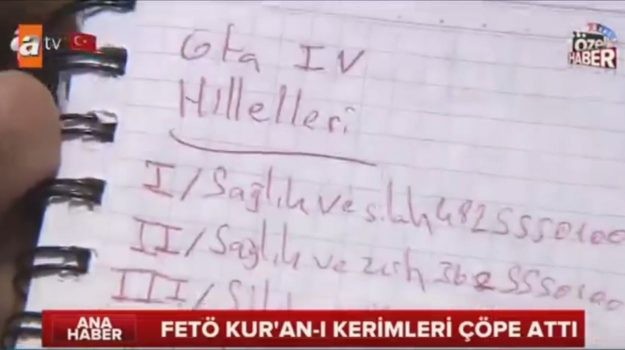 atv
ÖZEL
HABER
Gta IV
Hilleleri
I/ Sağlık ve silah 482 555 0100
II/ Sağlık ve zırh 362 555 0100
III/
ANA
HABER
FETÖ KUR'AN-I KERİMLERİ ÇÖPE ATTI